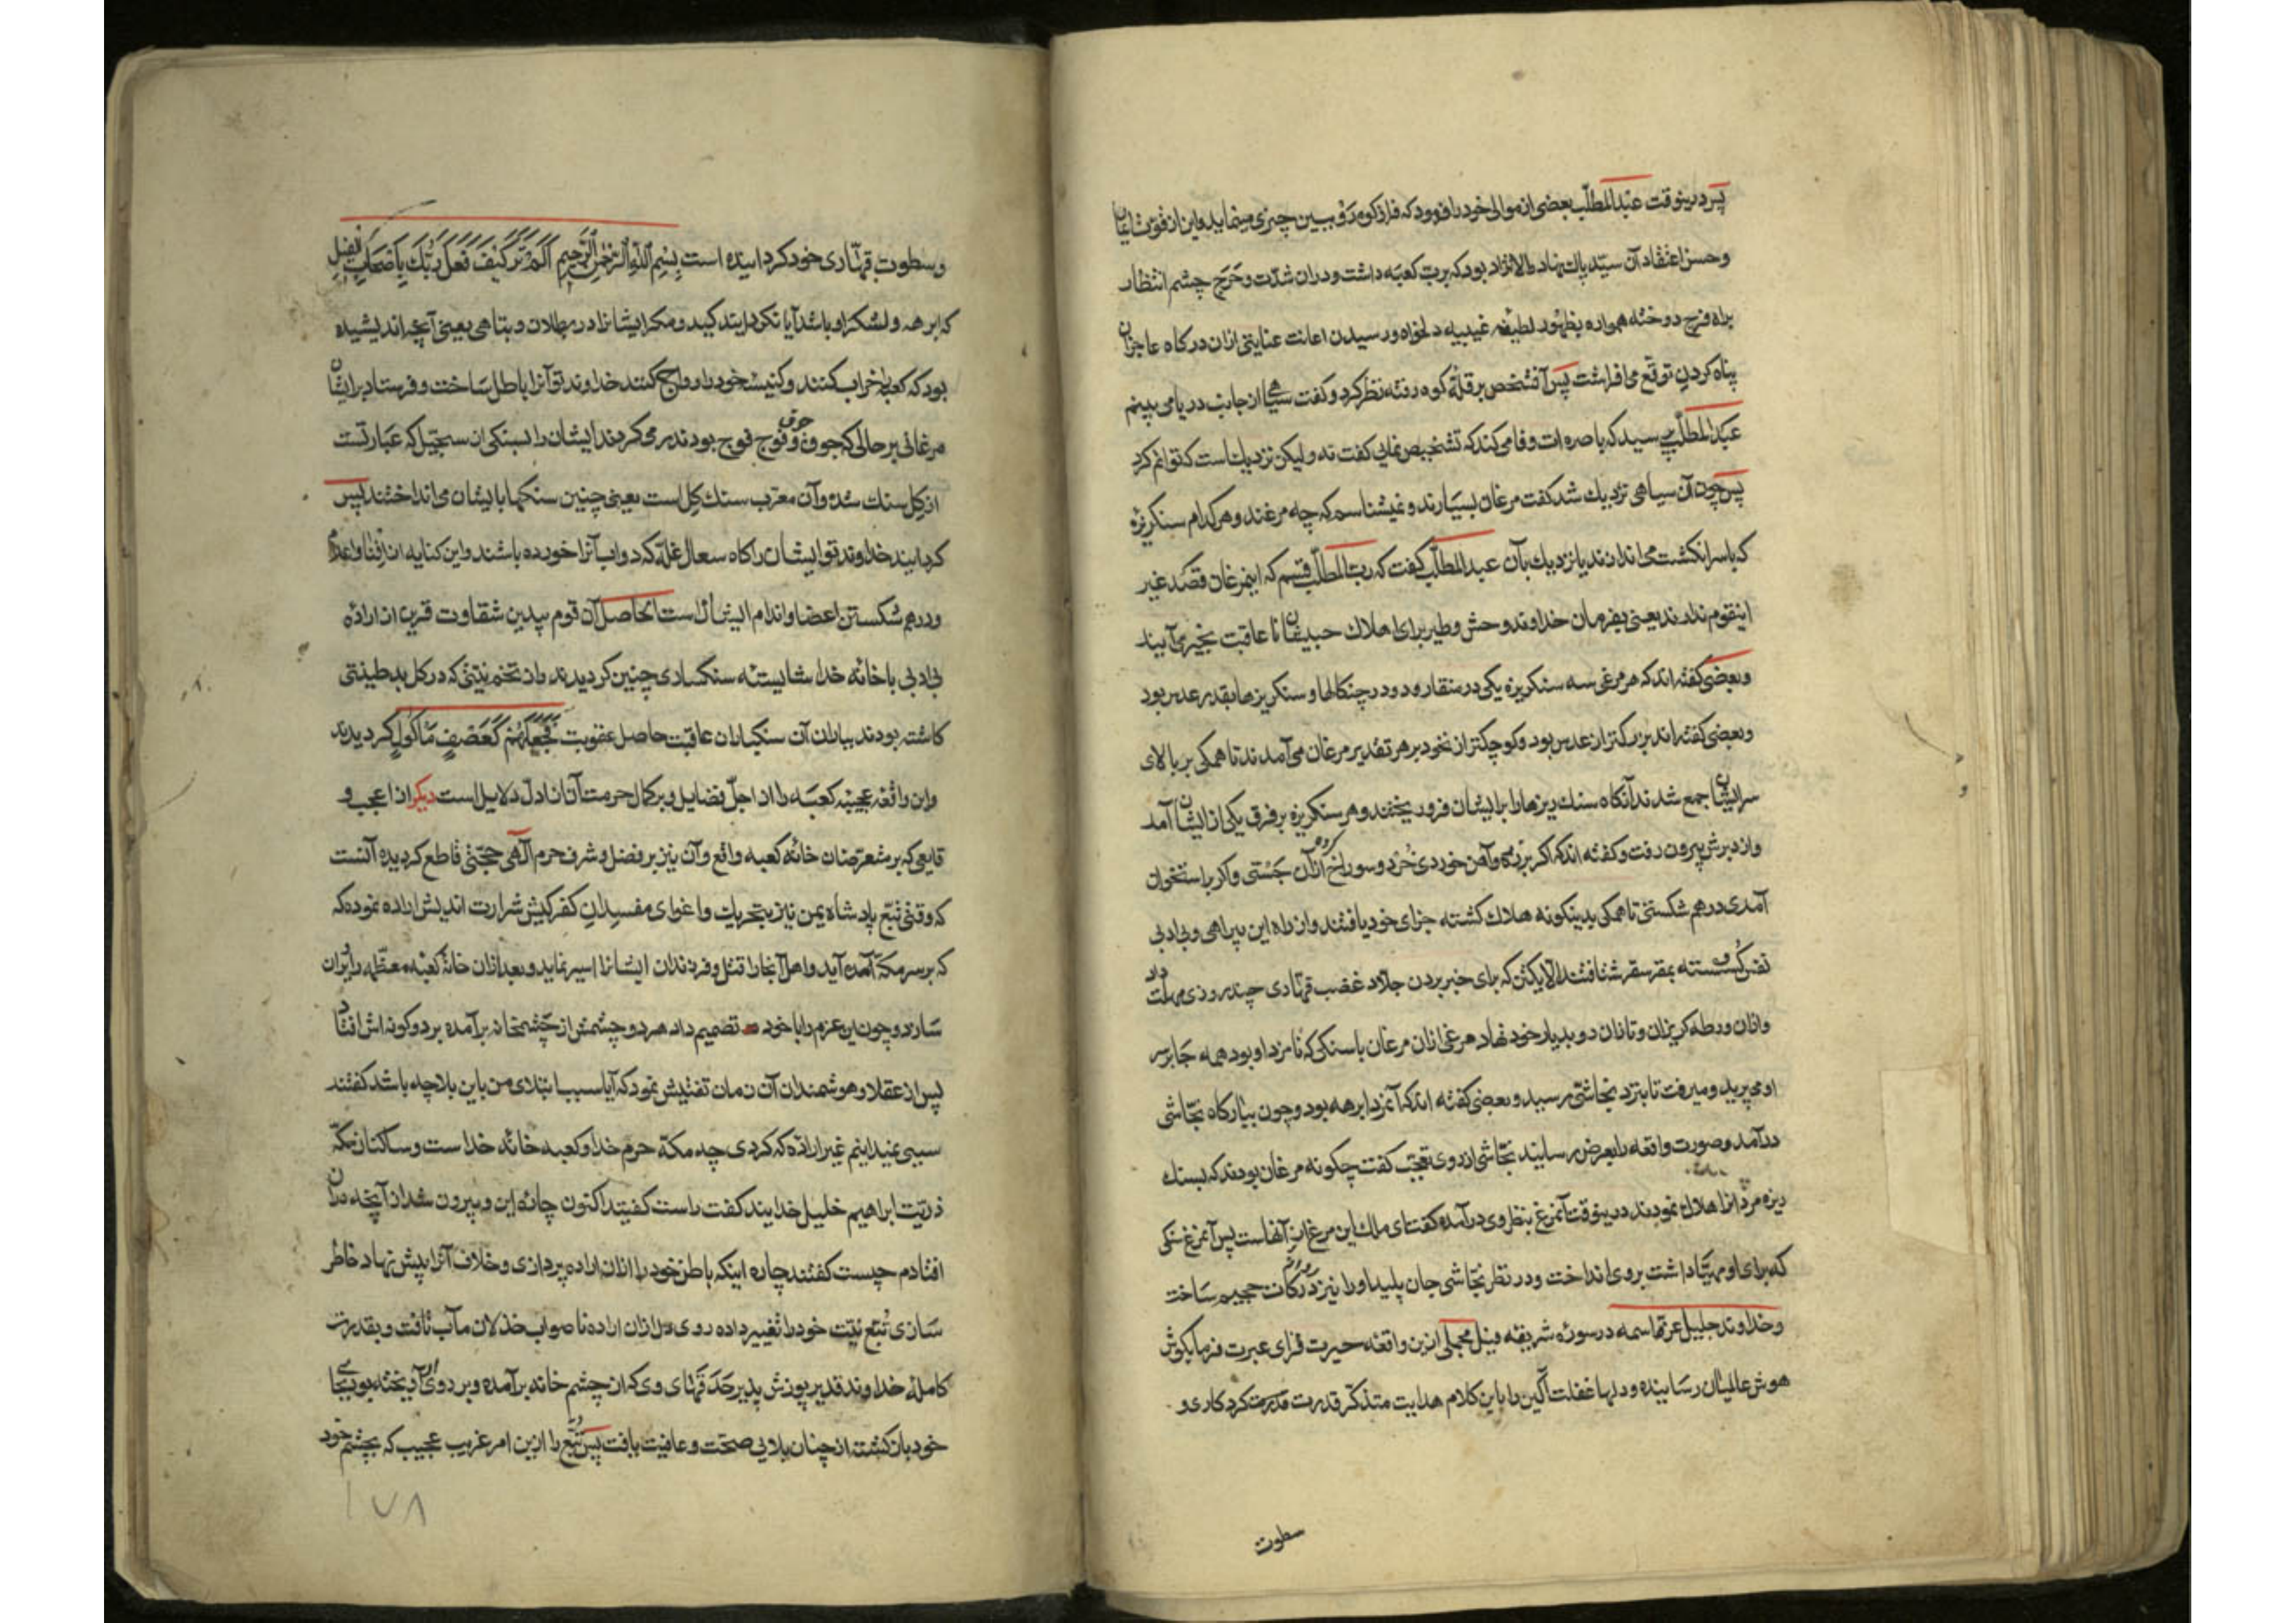 پس درینوقت عبدالمطلّب بعضی از موالی خود را فرمود که فراز کوه رو ببین چیزی مینماید و این از قوت ایقان
و حسن اعتقاد آن سیّد پاك نهاد والانژاد بود که برب کعبه داشت و دران شدّت و حَرَج چشم انتظار
براه فرج دوخته همواره بظهور لطیفه غیبیه دلخواه و رسیدن اعانت عنایتی ازان درکاه عاجزان
پناه کردن توقع می افراشت پس آنشخص بر قلّه کوه رفته نظر کرد و کفت سیاهی از جانب دریا می بینم
عبدالمطلّب پرسید که باصره ات وفا می کند که تشخیص نمایی کفت نه ولیکن نزدیك است که توانم کرد
پس چون آن سیاهی نزدیك شد کفت مرغان بسیارند و نمیشناسم که چه مرغند و هر کدام سنکریزه
که باسر انکشت می اندازند یا نزدیك بآن عبدالمطلّب کفت که برب المطلّب قسم که اینمرغان قصد غیر
اینقوم ندارند یعنی بفرمان خداوند وحش و طیر برای اهلاك حبشیان تا عاقبت بخیر می آیند
و بعضی کفته اند که هر مرغی سه سنکریزه یکی در منقار و دو در چنکالها و سنکریزها بقدر عدس بود
و بعضی کفته اند بزرکتر از عدس بود و کوچکتر از نخود بر هر تقدیر مرغان می آمدند تا همکی بر بالای
سر ایشان جمع شدند آنکاه سنك ریزها را بر ایشان فرو ریختند و هر سنکریزه بر فرق یکی از ایشان آمد
و از دبرش بیرون رفت و کفته اند که اکر بزره و آهن خوردی خُرد و سوراخ کرده ازان جَستی و اکر باستخوان
آمدی درهم شکستی تا همکی بدینکونه هلاك کشته جزای خود یافتند و از راه این بیراهی و بی ادبی
نفس کسسته بمقر سقر شتافتند الّا یکتن که برای خبر بردن جلاد غضب قهّاری چند روزی مهلت داد
و ازان ورطه کریزان و تازان رو بدیار خود نهاد مرغی ازان مرغان با سنکی که نامزد او بود همه جا بر سر
او می پرید و میرفت تا بنزد نجاشی رسید و بعضی کفته اند که آنمرد ابرهه بود و چون ببارکاه نجاشی
درآمد و صورت واقعه را بعرض رسانید نجاشی از روی تعجب کفت چکونه مرغان بودند که بسنك
ریزه مردانرا هلاك نمودند درینوقت آنمرغ بنظر وی درآمده کفت ای ملك این مرغ ازانهاست پس آنمرغ سنکی
که برای او مهیّا داشت بروی انداخت و در نظر نجاشی جان پلید او را نیز روانه درکات جحیم ساخت
و خداوند جلیل عزّ اسمه در سوره شریفه فیل مجملی ازین واقعه حیرت فزای عبرت فرما بکوش
هوش عالمیان رسانیده و دلها غفلت آکین را باین کلام هدایت متذکّر قدرت کردکاری و
سطوت
و سطوت قهّاری خود کردانیده است بِسْمِ اللّهِ الرَّحْمٰنِ الرَّحِيمِ اَلَمْ تَرَ كَيْفَ فَعَلَ رَبُّكَ بِأَصْحَابِ الْفِيلِ
که ابرهه و لشکر او باشد آیا نکردانید کید و مکر ایشانرا در بطلان و تباهی یعنی آنچه اندیشیده
بود که کعبه را خراب کنند و کنیسه خود را رواج کنند خداوند تو آنرا باطل ساخت و فرستاد بر ایشان
مرغانی بر حالی که جوق جوق و فوج فوج بودند رمی کردند ایشان را بسنکی از سجّیل که عبارتست
از کِل سنك شده و آن معرّب سنك کِل است یعنی چنین سنکها بایشان می انداختند پس
کردانید خداوند تو ایشان را کاه سعال غلّه که دواب آنرا خورده باشند و این کنایه از افنا و اعدام
و درهم شکستن اعضا و اندام ایشانست الحاصل آن قوم بیدین شقاوت قرین از اراده
بی ادبی با خانه خدا شایسته سنکساری چنین کردیدند و از تخم نیّتی که در کل بد طینتی
کاشته بودند بباران آن سنکباران عاقبت حاصل عقوبت فَجَعَلَهُمْ كَعَصْفٍ مَأْكُولٍ کردیدند
و این واقعه عجیبه کعبه را از اجلّ فضایل و بر کمال حرمت آن از ادلّ دلایل است دیکر از اعجب و
قایعی که بر متعرّضان خانه کعبه واقع و آن نیز بر فضل و شرف حرم آلهی حجّتی قاطع کردیده آنست
که وقتی تبّع پادشاه یمن نیز بتحریك و اغوای مفسدانِ کفر کیش شرارت اندیش اراده نموده که
که بر سر مکّه آمده آید و اهل آنجا را قتل و فرزندان ایشانرا اسیر نماید و بعد ازان خانه کعبه معظمه را ویران
سازد و چون این عزم را با خود تصمیم داد هر دو چشمش از چشمخانه برآمده بر دو کونه اش افتاد
پس از عقلا و هوشمندان آن زمان تفتیش نمود که آیا سبب ابتلای من باین بلا چه باشد کفتند
سببی نمیدانیم غیر اراده که کردی چه مکّه حرم خدا و کعبه خانه خدا است و ساکنان مکّه
ذریّت ابراهیم خلیل خدایند کفت راست کفتید اکنون چاره این و بیرون شد از آنچه دران
افتادم چیست کفتند چاره اینکه باطن خود را ازان اراده پردازی و خلاف آنرا پیش نهاد خاطر
سازی تُبّع نیّت خود را تغییر داده روی دل ازان اراده ناصواب خذلان مآب تافت و بقدرت
کامله خداوند قدیر پوزش پذیر حدقهای وی که از چشم خانه برآمده و بر روی او آویخته بود بجای
خود بازکشته از چنان بلایی صحّت و عافیت یافت پس تُبّع را ازین امر غریب عجیب که بچشم خود
۱۷۸